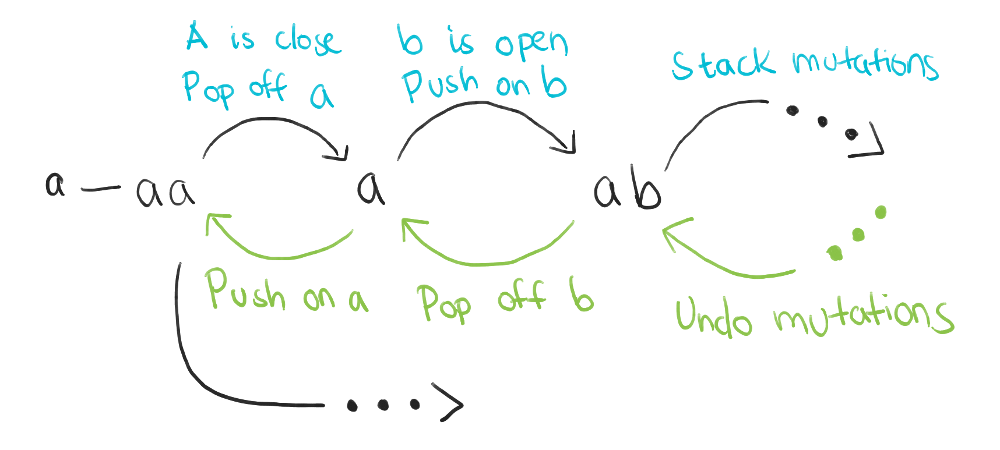 A is close
Pop off a
b is open
Push on b
Stack mutations
a — aa
a
ab
Push on a
Pop off b
Undo mutations